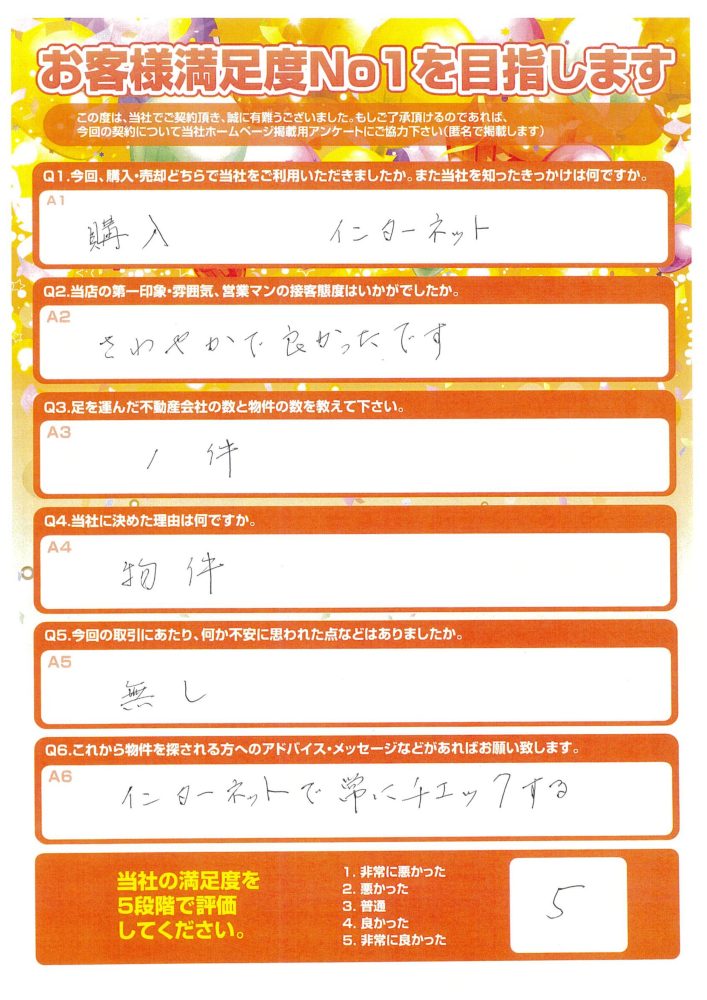 お客様満足度No1を目指します
この度は、当社でご契約頂き、誠に有難うございました。もしご了承頂けるのであれば、
今回の契約について当社ホームページ掲載用アンケートにご協力下さい（匿名で掲載します）
Q1.今回、購入・売却どちらで当社をご利用いただきましたか。また当社を知ったきっかけは何ですか。
A1
購入 インターネット
Q2.当店の第一印象・雰囲気、営業マンの接客態度はいかがでしたか。
A2
さわやかで良かったです
Q3.足を運んだ不動産会社の数と物件の数を教えて下さい。
A3
1件
Q4.当社に決めた理由は何ですか。
A4
物件
Q5.今回の取引にあたり、何か不安に思われた点などはありましたか。
A5
無し
Q6.これから物件を探される方へのアドバイス・メッセージなどがあればお願い致します。
A6
インターネットで常にチェックする
当社の満足度を
5段階で評価
してください。
1. 非常に悪かった
2. 悪かった
3. 普通
4. 良かった
5. 非常に良かった
5